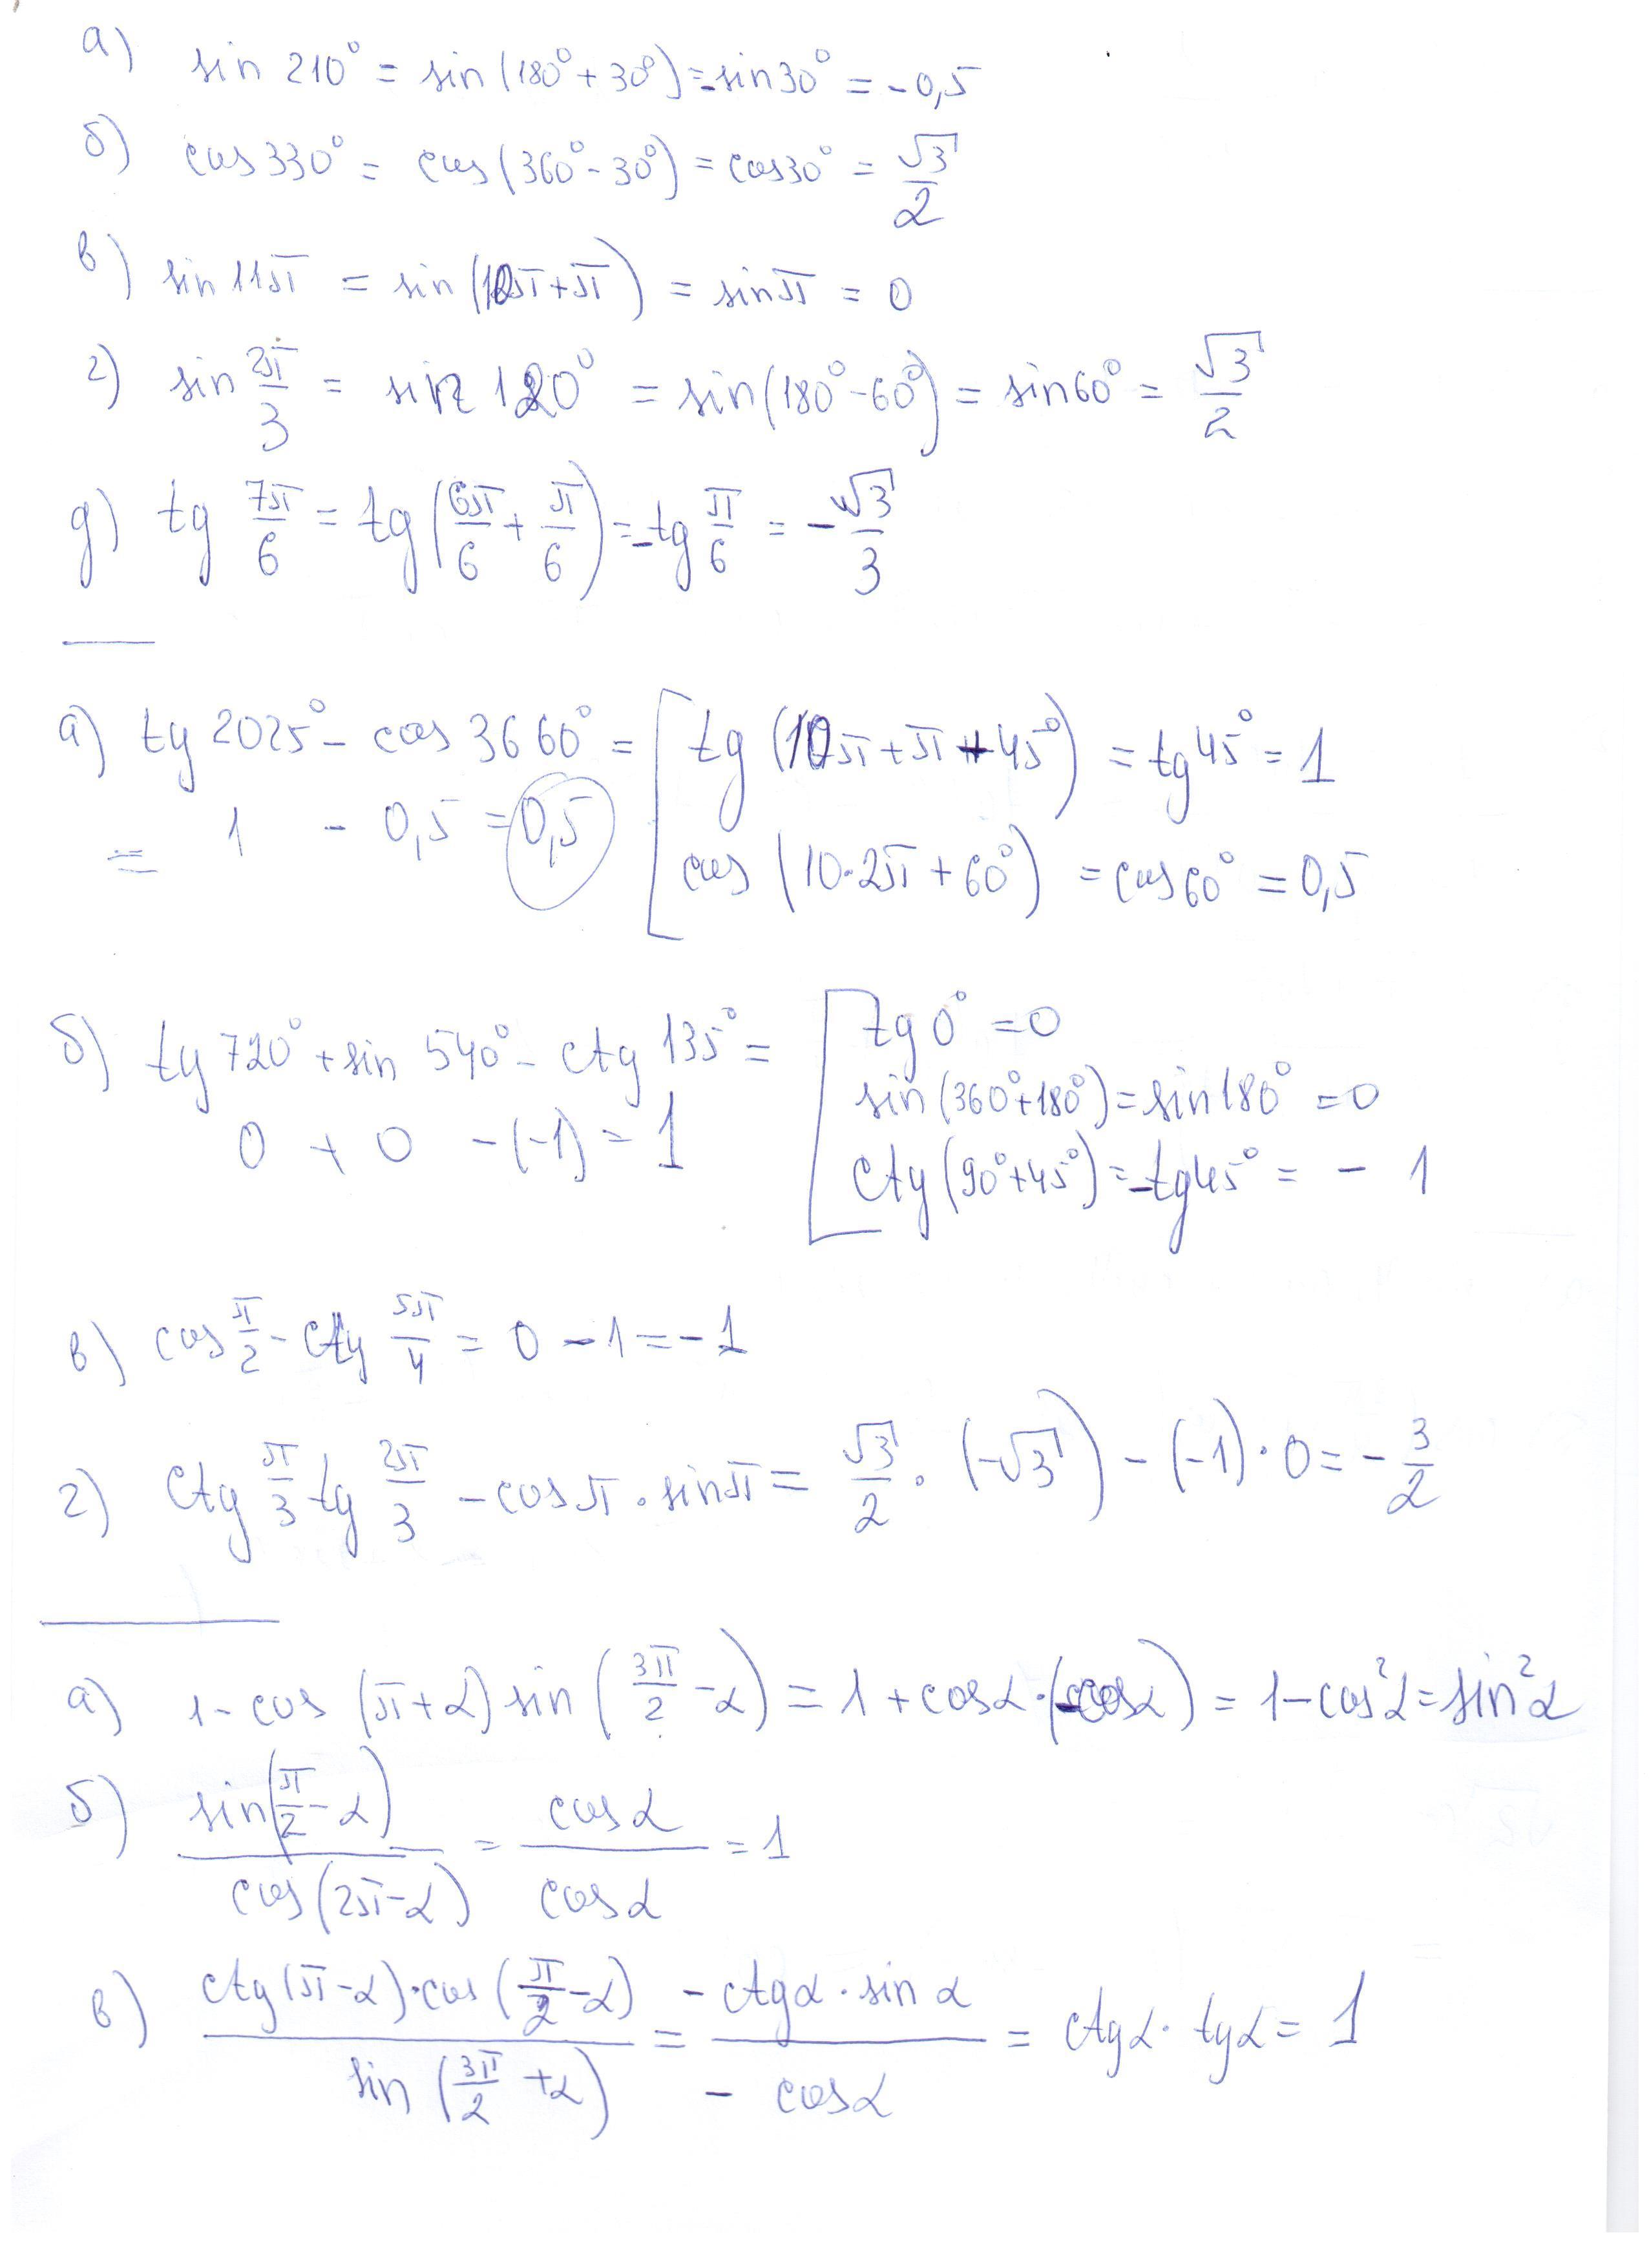 а) sin 210° = sin (180° + 30°) = -sin 30° = -0,5
б) cos 330° = cos (360° - 30°) = cos 30° = √3/2
в) sin 11π = sin (10π + π) = sin π = 0
г) sin 2π/3 = sin 120° = sin (180° - 60°) = sin 60° = √3/2
д) tg 7π/6 = tg (6π/6 + π/6) = -tg π/6 = -√3/3
а) tg 2025° - cos 3660° = [ tg (10π + π + 45°) = tg 45° = 1
= 1 - 0,5 = 0,5
cos (10·2π + 60°) = cos 60° = 0,5
б) tg 720° + sin 540° - ctg 135° = [ tg 0° = 0
sin (360° + 180°) = sin 180° = 0
0 + 0 - (-1) = 1
ctg (90° + 45°) = -tg 45° = - 1
в) cos π/2 - ctg 5π/4 = 0 - 1 = -1
г) ctg π/3 tg 2π/3 - cos π · sin π = √3/2 · (-√3) - (-1) · 0 = - 3/2
а) 1 - cos (π + α) sin (3π/2 - α) = 1 + cos α · (-cos α) = 1 - cos²α = sin²α
б) sin (π/2 - α) / cos (2π - α) = cos α / cos α = 1
в) ctg (π - α) · cos (π/2 - α) / sin (3π/2 + α) = - ctg α · sin α / - cos α = ctg α · tg α = 1